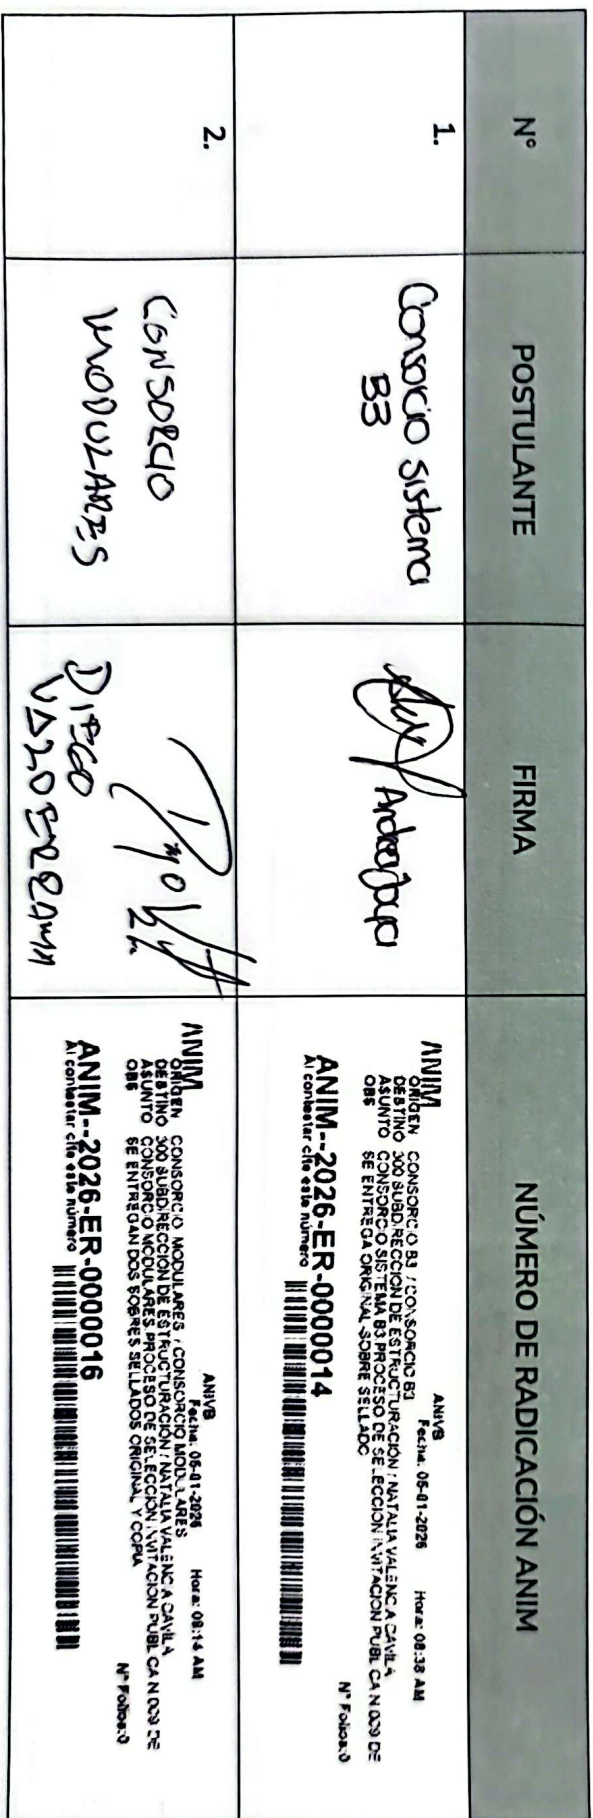 N° POSTULANTE FIRMA NÚMERO DE RADICACIÓN ANIM
1.
Consorcio sistema
B3
Andrea Jaya
ANIM
ANIVB
Fecha: 05-01-2026 Hora: 08:38 AM
ORIGEN CONSORCIO B3 / CONSORCIO B3
DESTINO 300 SUBDIRECCIÓN DE ESTRUCTURACIÓN / NATALIA VALENCIA DAVILA
ASUNTO CONSORCIO SISTEMA B3 PROCESO DE SELECCION INVITACION PUBLICA N 009 DE
OBS SE ENTREGA ORIGINAL SOBRE SELLADO
N° Folios:0
ANIM--2026-ER-0000014
Al contestar cite este número
2.
CONSORCIO
MODULARES
DIEGO
VALDERRAMA
ANIM
ANIVB
Fecha: 05-01-2026 Hora: 09:14 AM
ORIGEN CONSORCIO MODULARES / CONSORCIO MODULARES
DESTINO 300 SUBDIRECCIÓN DE ESTRUCTURACIÓN / NATALIA VALENCIA DAVILA
ASUNTO CONSORCIO MODULARES PROCESO DE SELECCIÓN INVITACION PUBLICA N 009 DE
OBS SE ENTREGAN DOS SOBRES SELLADOS ORIGINAL Y COPIA
N° Folios:0
ANIM--2026-ER-0000016
Al contestar cite este número